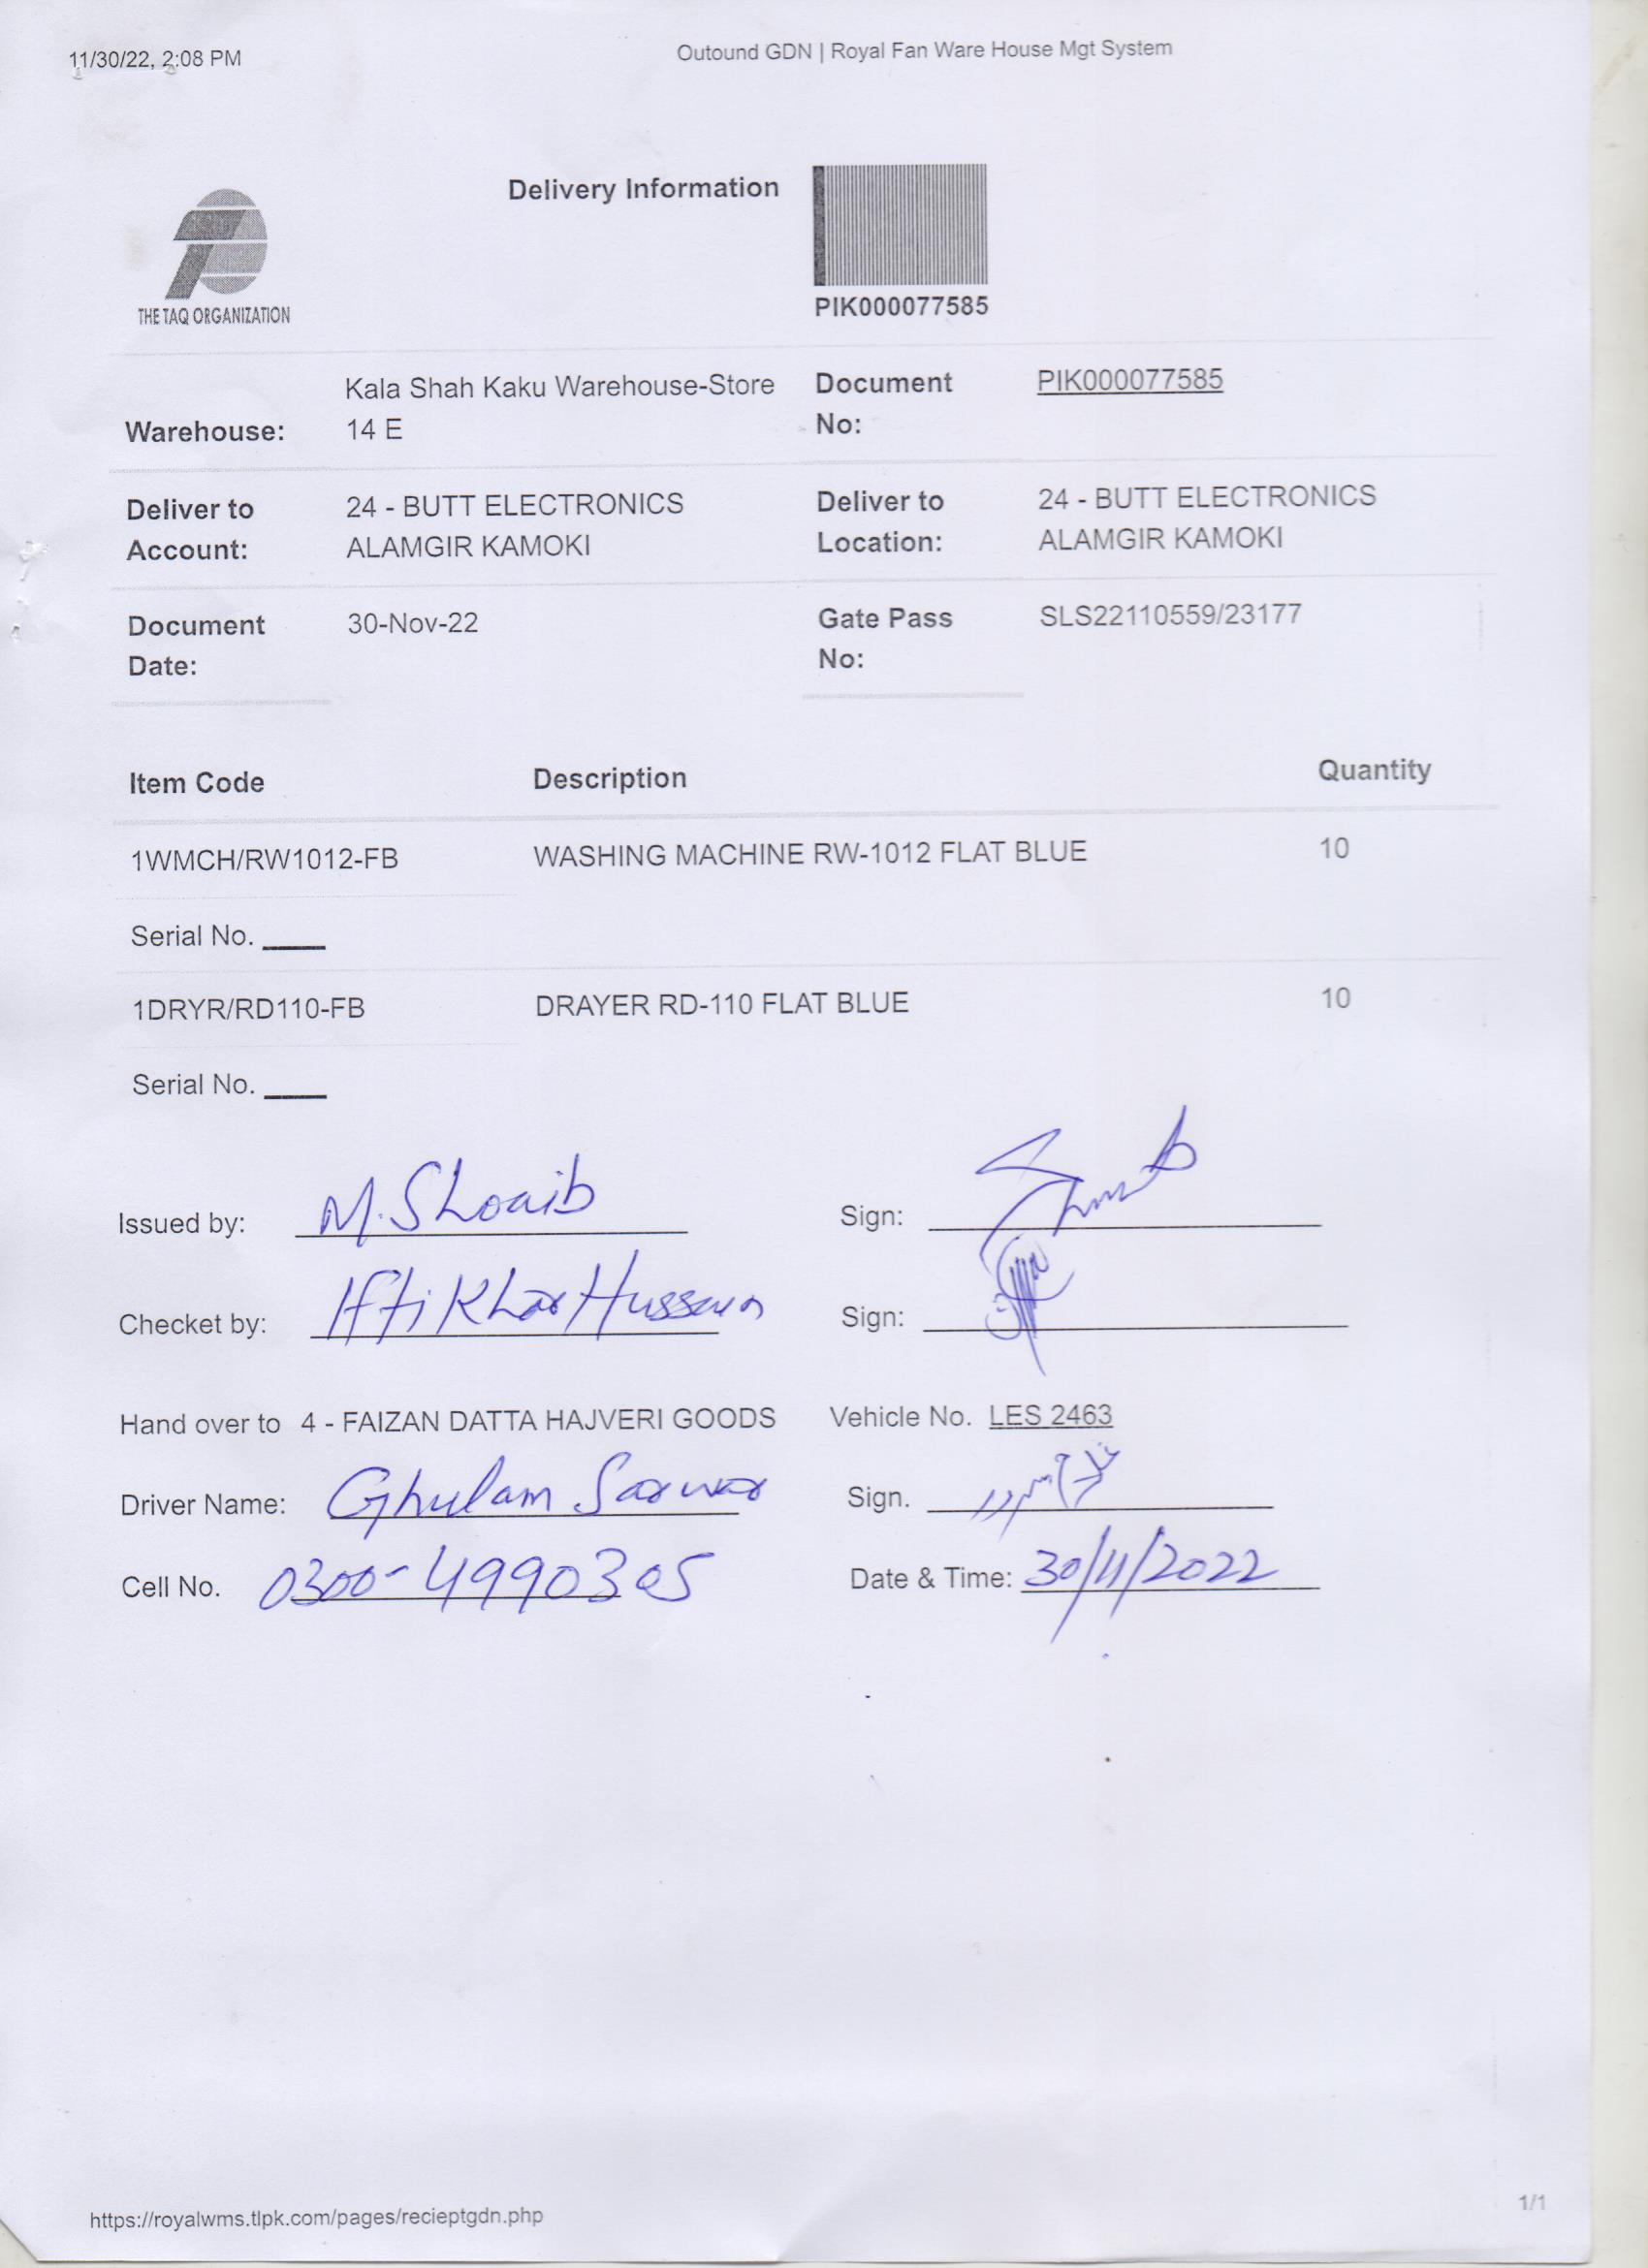 11/30/22, 2:08 PM
Outound GDN | Royal Fan Ware House Mgt System
Delivery Information
THE TAQ ORGANIZATION
PIK000077585
Warehouse: Kala Shah Kaku Warehouse-Store 14 E
Document No: PIK000077585
Deliver to Account: 24 - BUTT ELECTRONICS ALAMGIR KAMOKI
Deliver to Location: 24 - BUTT ELECTRONICS ALAMGIR KAMOKI
Document Date: 30-Nov-22
Gate Pass No: SLS22110559/23177
Item Code Description Quantity
1WMCH/RW1012-FB WASHING MACHINE RW-1012 FLAT BLUE 10
Serial No. ____
1DRYR/RD110-FB DRAYER RD-110 FLAT BLUE 10
Serial No. ____
Issued by: M. Shoaib Sign:
Checket by: Iftikhar Hussain Sign:
Hand over to 4 - FAIZAN DATTA HAJVERI GOODS Vehicle No. LES 2463
Driver Name: Ghulam Sarwar Sign.
Cell No. 0300-4990305 Date & Time: 30/11/2022
https://royalwms.tlpk.com/pages/recieptgdn.php
1/1